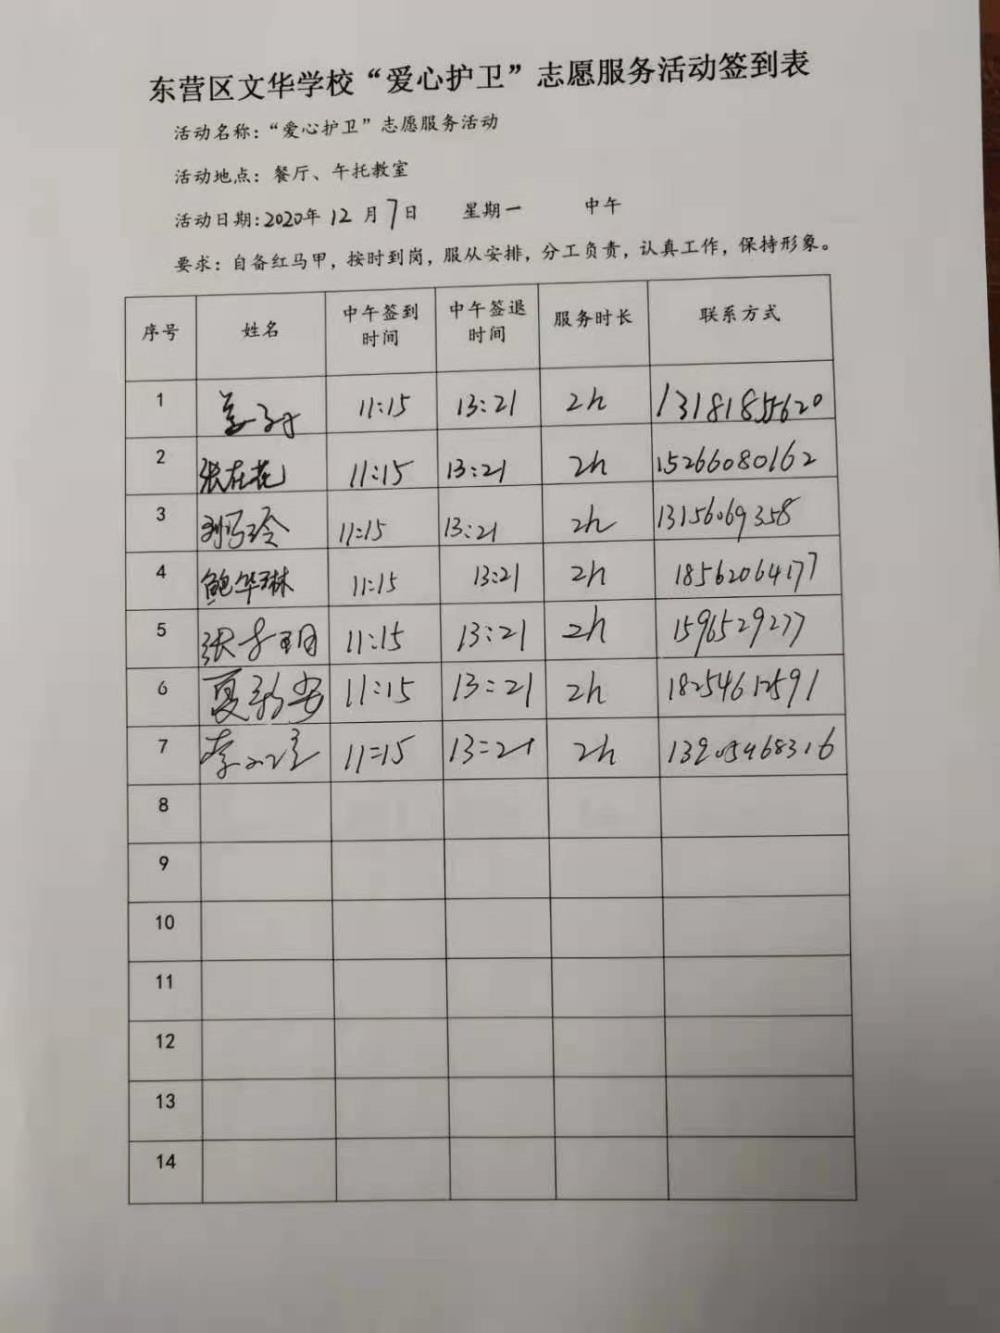 东营区文华学校“爱心护卫”志愿服务活动签到表
活动名称：“爱心护卫”志愿服务活动
活动地点：餐厅、午托教室
活动日期：2020年 12 月 7 日 星期一 中午
要求：自备红马甲，按时到岗，服从安排，分工负责，认真工作，保持形象。
序号 姓名 中午签到时间 中午签退时间 服务时长 联系方式
1 11:15 13:21 2h
2 张在花 11:15 13:21 2h 15266080162
3 11:15 13:21 2h 13156069358
4 鲍华琳 11:15 13:21 2h 18562064177
5 11:15 13:21 2h 1596529277
6 11:15 13:21 2h 18254612591
7 11:15 13:21 2h 13205468316
8
9
10
11
12
13
14